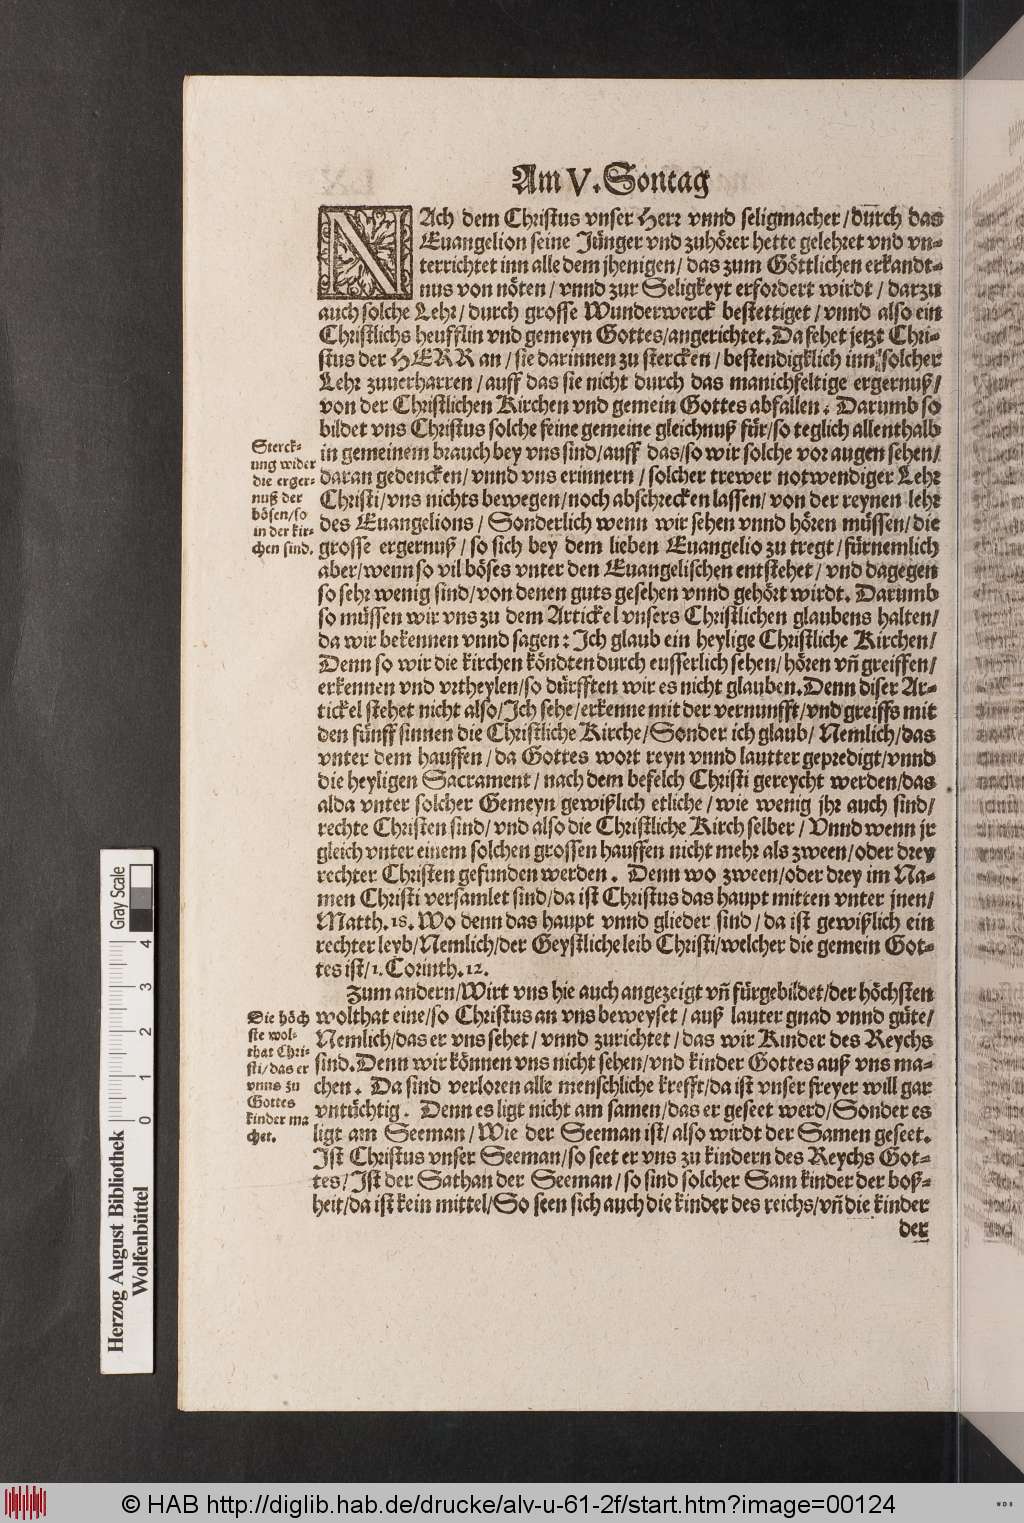 Am V. Sontag
NAch dem Christus vnser Herr vnnd seligmacher / durch das
Euangelion seine Jünger vnd zuhörer hette gelehret vnd vn-
terrichtet inn alle dem jhenigen / das zum Göttlichen erkandt-
nus von nöten / vnnd zur Seligkeyt erfordert wirdt / darzu
auch solche Lehr / durch grosse Wunderwerck bestettiget / vnnd also ein
Christlichs heufflin vnd gemeyn Gottes / angerichtet. Da fehet jetzt Chri-
stus der HERR an / sie darinnen zu stercken / bestendigklich inn solcher
Lehr zuuerharren / auff das sie nicht durch das manichfeltige ergernuß /
von der Christlichen Kirchen vnd gemein Gottes abfallen. Darumb so
bildet vns Christus solche feine gemeine gleichnuß für / so teglich allenthalb
in gemeinem brauch bey vns sind / auff das / so wir solche vor augen sehen /
daran gedencken / vnnd vns erinnern / solcher trewer notwendiger Lehr
Christi / vns nichts bewegen / noch abschrecken lassen / von der reynen lehr
des Euangelions / Sonderlich wenn wir sehen vnnd hören müssen / die
grosse ergernuß / so sich bey dem lieben Euangelio zu tregt / fürnemlich
aber / wenn so vil böses vnter den Euangelischen entstehet / vnd dagegen
so sehr wenig sind / von denen guts gesehen vnnd gehört wirdt. Darumb
so müssen wir vns zu dem Artickel vnsers Christlichen glaubens halten /
da wir bekennen vnnd sagen: Ich glaub ein heylige Christliche Kirchen /
Denn so wir die kirchen köndten durch eusserlich sehen / hören vn̄ greiffen /
erkennen vnd vrtheylen / so dürfften wir es nicht glauben. Denn diser Ar-
tickel stehet nicht also / Ich sehe / erkenne mit der vernunfft / vnd greiffs mit
den fünff sinnen die Christliche Kirche / Sonder ich glaub / Nemlich / das
vnter dem hauffen / da Gottes wort reyn vnnd lautter gepredigt / vnnd
die heyligen Sacrament / nach dem befelch Christi gereycht werden / das
alda vnter solcher Gemeyn gewißlich etliche / wie wenig jhr auch sind /
rechte Christen sind / vnd also die Christliche Kirch selber / Vnnd wenn jr
gleich vnter einem solchen grossen hauffen nicht mehr als zween / oder drey
rechter Christen gefunden werden. Denn wo zween / oder drey im Na-
men Christi versamlet sind / da ist Christus das haupt mitten vnter jnen /
Matth. 18. Wo denn das haupt vnnd glieder sind / da ist gewißlich ein
rechter leyb / Nemlich / der Geystliche leib Christi / welcher die gemein Got-
tes ist / 1. Corinth. 12.
Sterck-
ung wider
die erger-
nuß der
bösen / so
in der kir-
chen sind.
Zum andern / Wirt vns hie auch angezeigt vn̄ fürgebildet / der höchsten
wolthat eine / so Christus an vns beweyset / auß lauter gnad vnnd güte /
Nemlich / das er vns sehet / vnnd zurichtet / das wir Kinder des Reychs
sind. Denn wir können vns nicht sehen / vnd kinder Gottes auß vns ma-
chen. Da sind verloren alle menschliche krefft / da ist vnser freyer will gar
vntüchtig. Denn es ligt nicht am samen / das er geseet werd / Sonder es
ligt am Seeman / Wie der Seeman ist / also wirdt der Samen geseet.
Ist Christus vnser Seeman / so seet er vns zu kindern des Reychs Got-
tes / Ist der Sathan der Seeman / so sind solcher Sam kinder der boß-
heit / da ist kein mittel / So seen sich auch die kinder des reichs / vn̄ die kinder
der
Die höch
ste wol-
that Chri-
sti / das er
vnns zu
Gottes
kinder ma
chet.
Gray Scale
0 1 2 3 4
Herzog August Bibliothek
Wolfenbüttel
© HAB http://diglib.hab.de/drucke/alv-u-61-2f/start.htm?image=00124